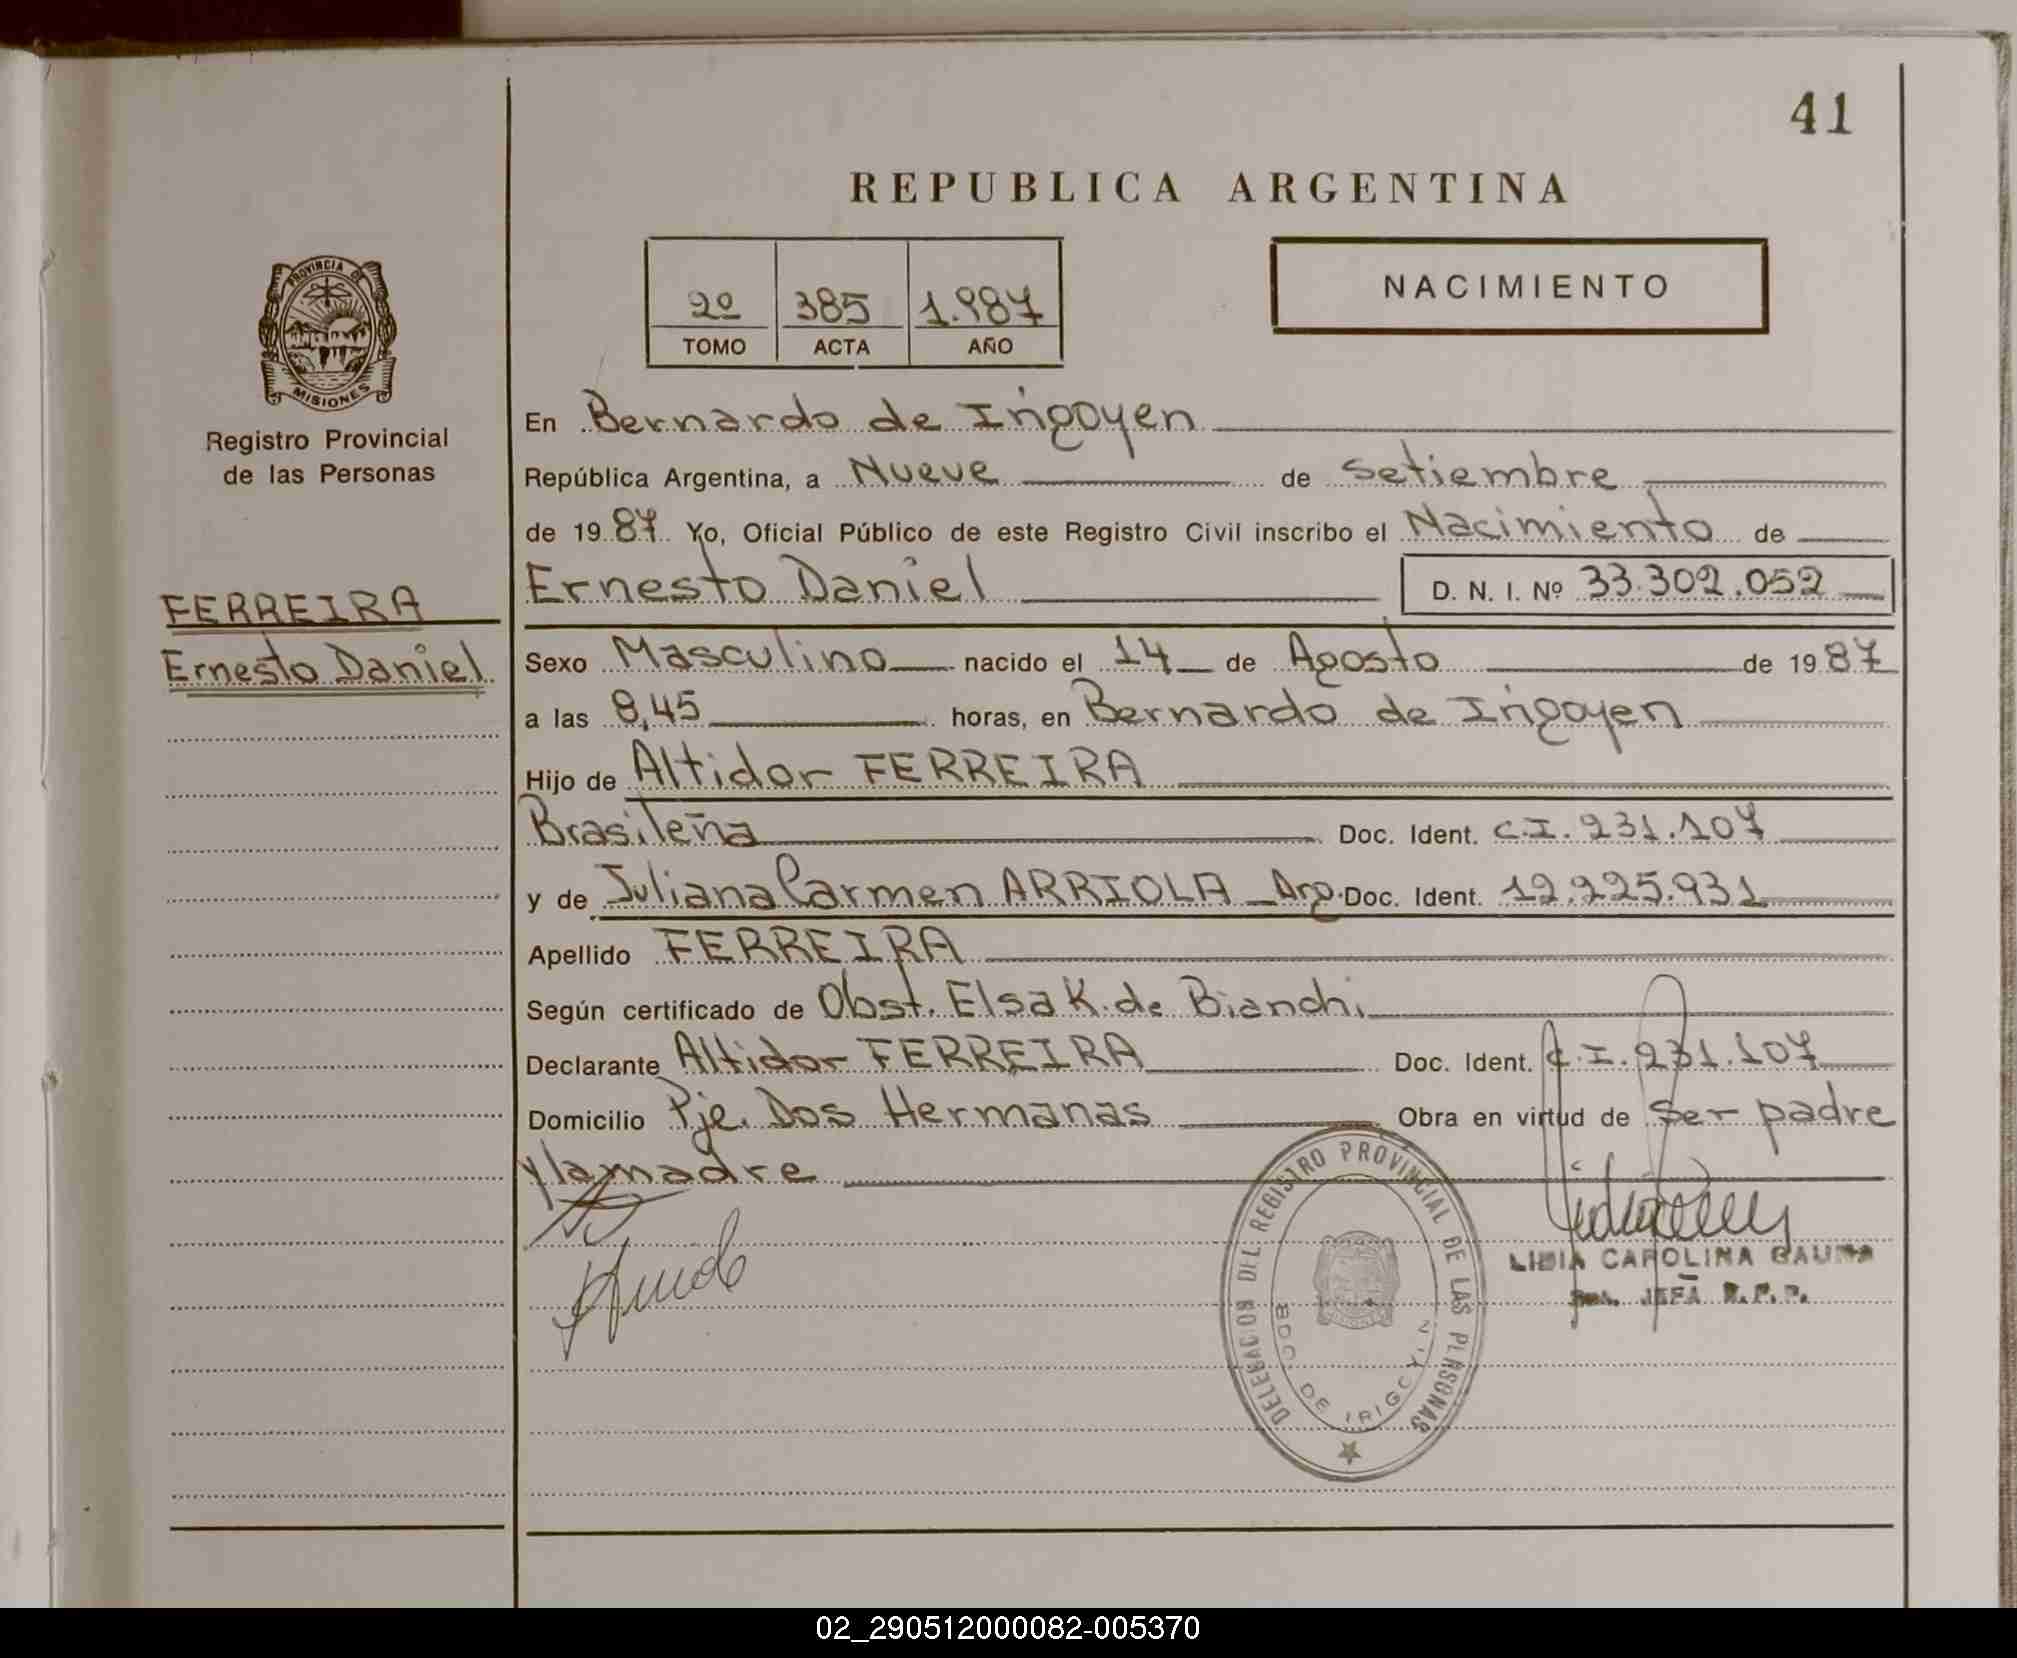 41
REPUBLICA ARGENTINA
2º 385 1.987
TOMO ACTA AÑO
NACIMIENTO
PROVINCIA DE
MISIONES
Registro Provincial
de las Personas
FERREIRA
Ernesto Daniel
En Bernardo de Irigoyen
República Argentina, a Nueve de Setiembre
de 1987 Yo, Oficial Público de este Registro Civil inscribo el Nacimiento de
Ernesto Daniel D. N. I. Nº 33.302.052
Sexo Masculino nacido el 14 de Agosto de 1987
a las 8,45 horas, en Bernardo de Irigoyen
Hijo de Altidor FERREIRA
Brasileña Doc. Ident. C.I. 231.107
y de Juliana Carmen ARRIOLA Arg. Doc. Ident. 12.225.931
Apellido FERREIRA
Según certificado de Obst. Elsa K. de Bianchi
Declarante Altidor FERREIRA Doc. Ident. C.I. 231.107
Domicilio Pje. Dos Hermanas Obra en virtud de Ser padre
y la madre
DELEGACION DEL REGISTRO PROVINCIAL DE LAS PERSONAS
BDO. DE IRIGOYEN
LIDIA CAROLINA GAUNA
JEFA R.P.P.
02_290512000082-005370